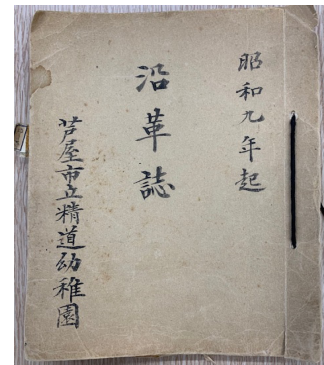 昭和九年起
沿革誌
芦屋市立精道幼稚園